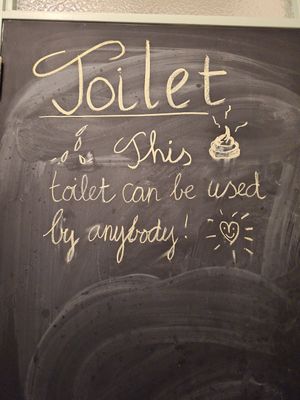 Toilet
This
toilet can be used
by anybody!